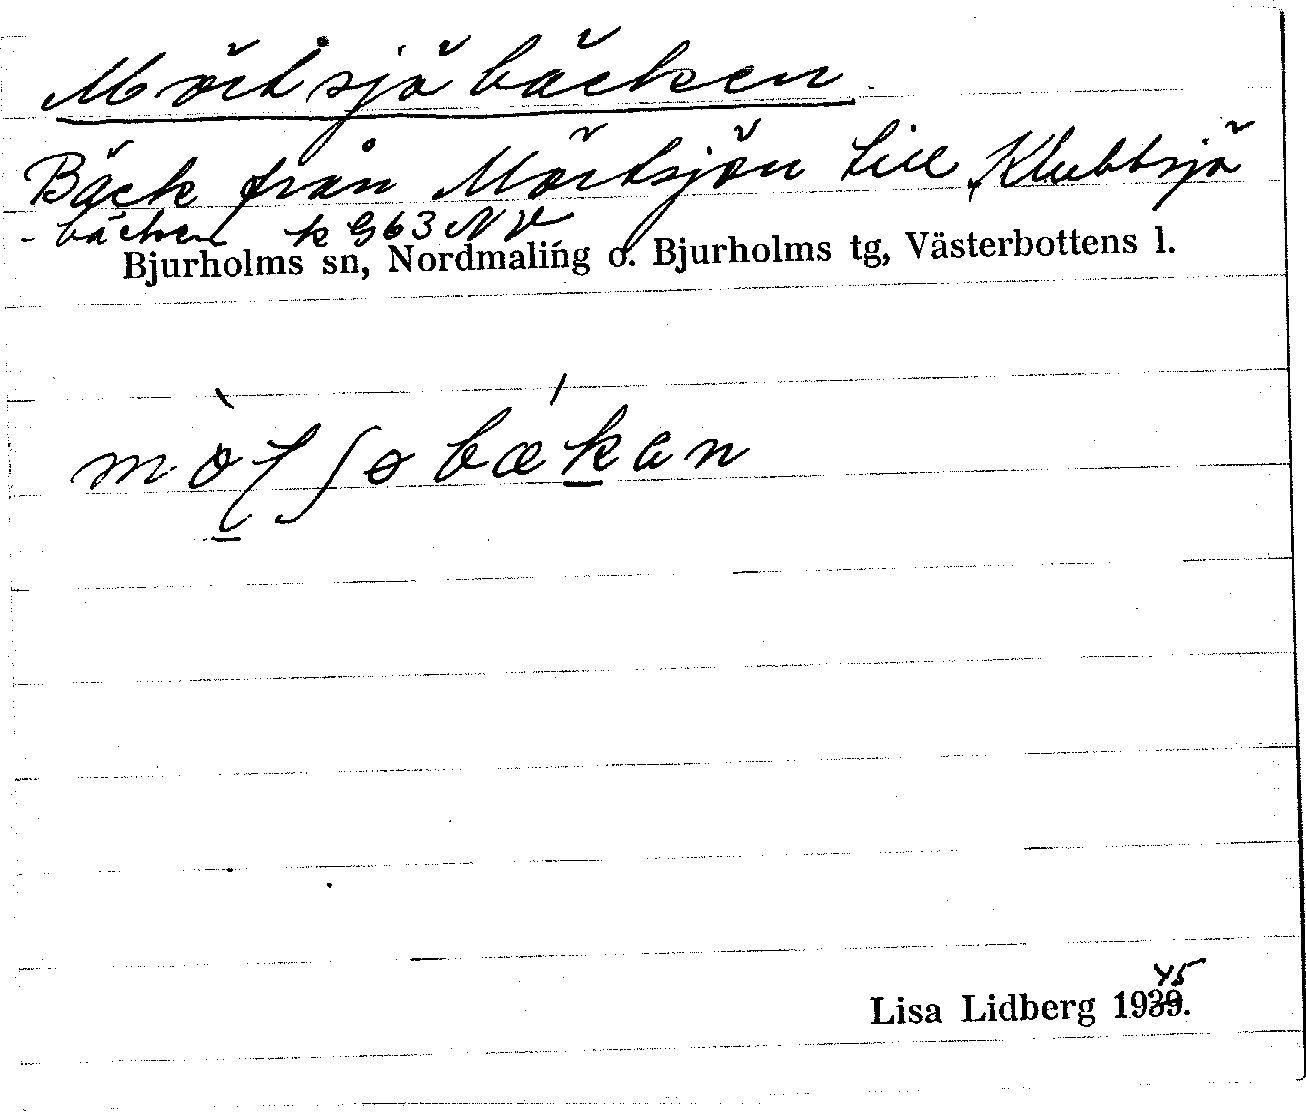 Mörtsjöbäcken
Bäck från Mörtsjön till Klubbsjö
-bäcken k G63 NV
Bjurholms sn, Nordmaling o. Bjurholms tg, Västerbottens l.
Lisa Lidberg 1939.
45